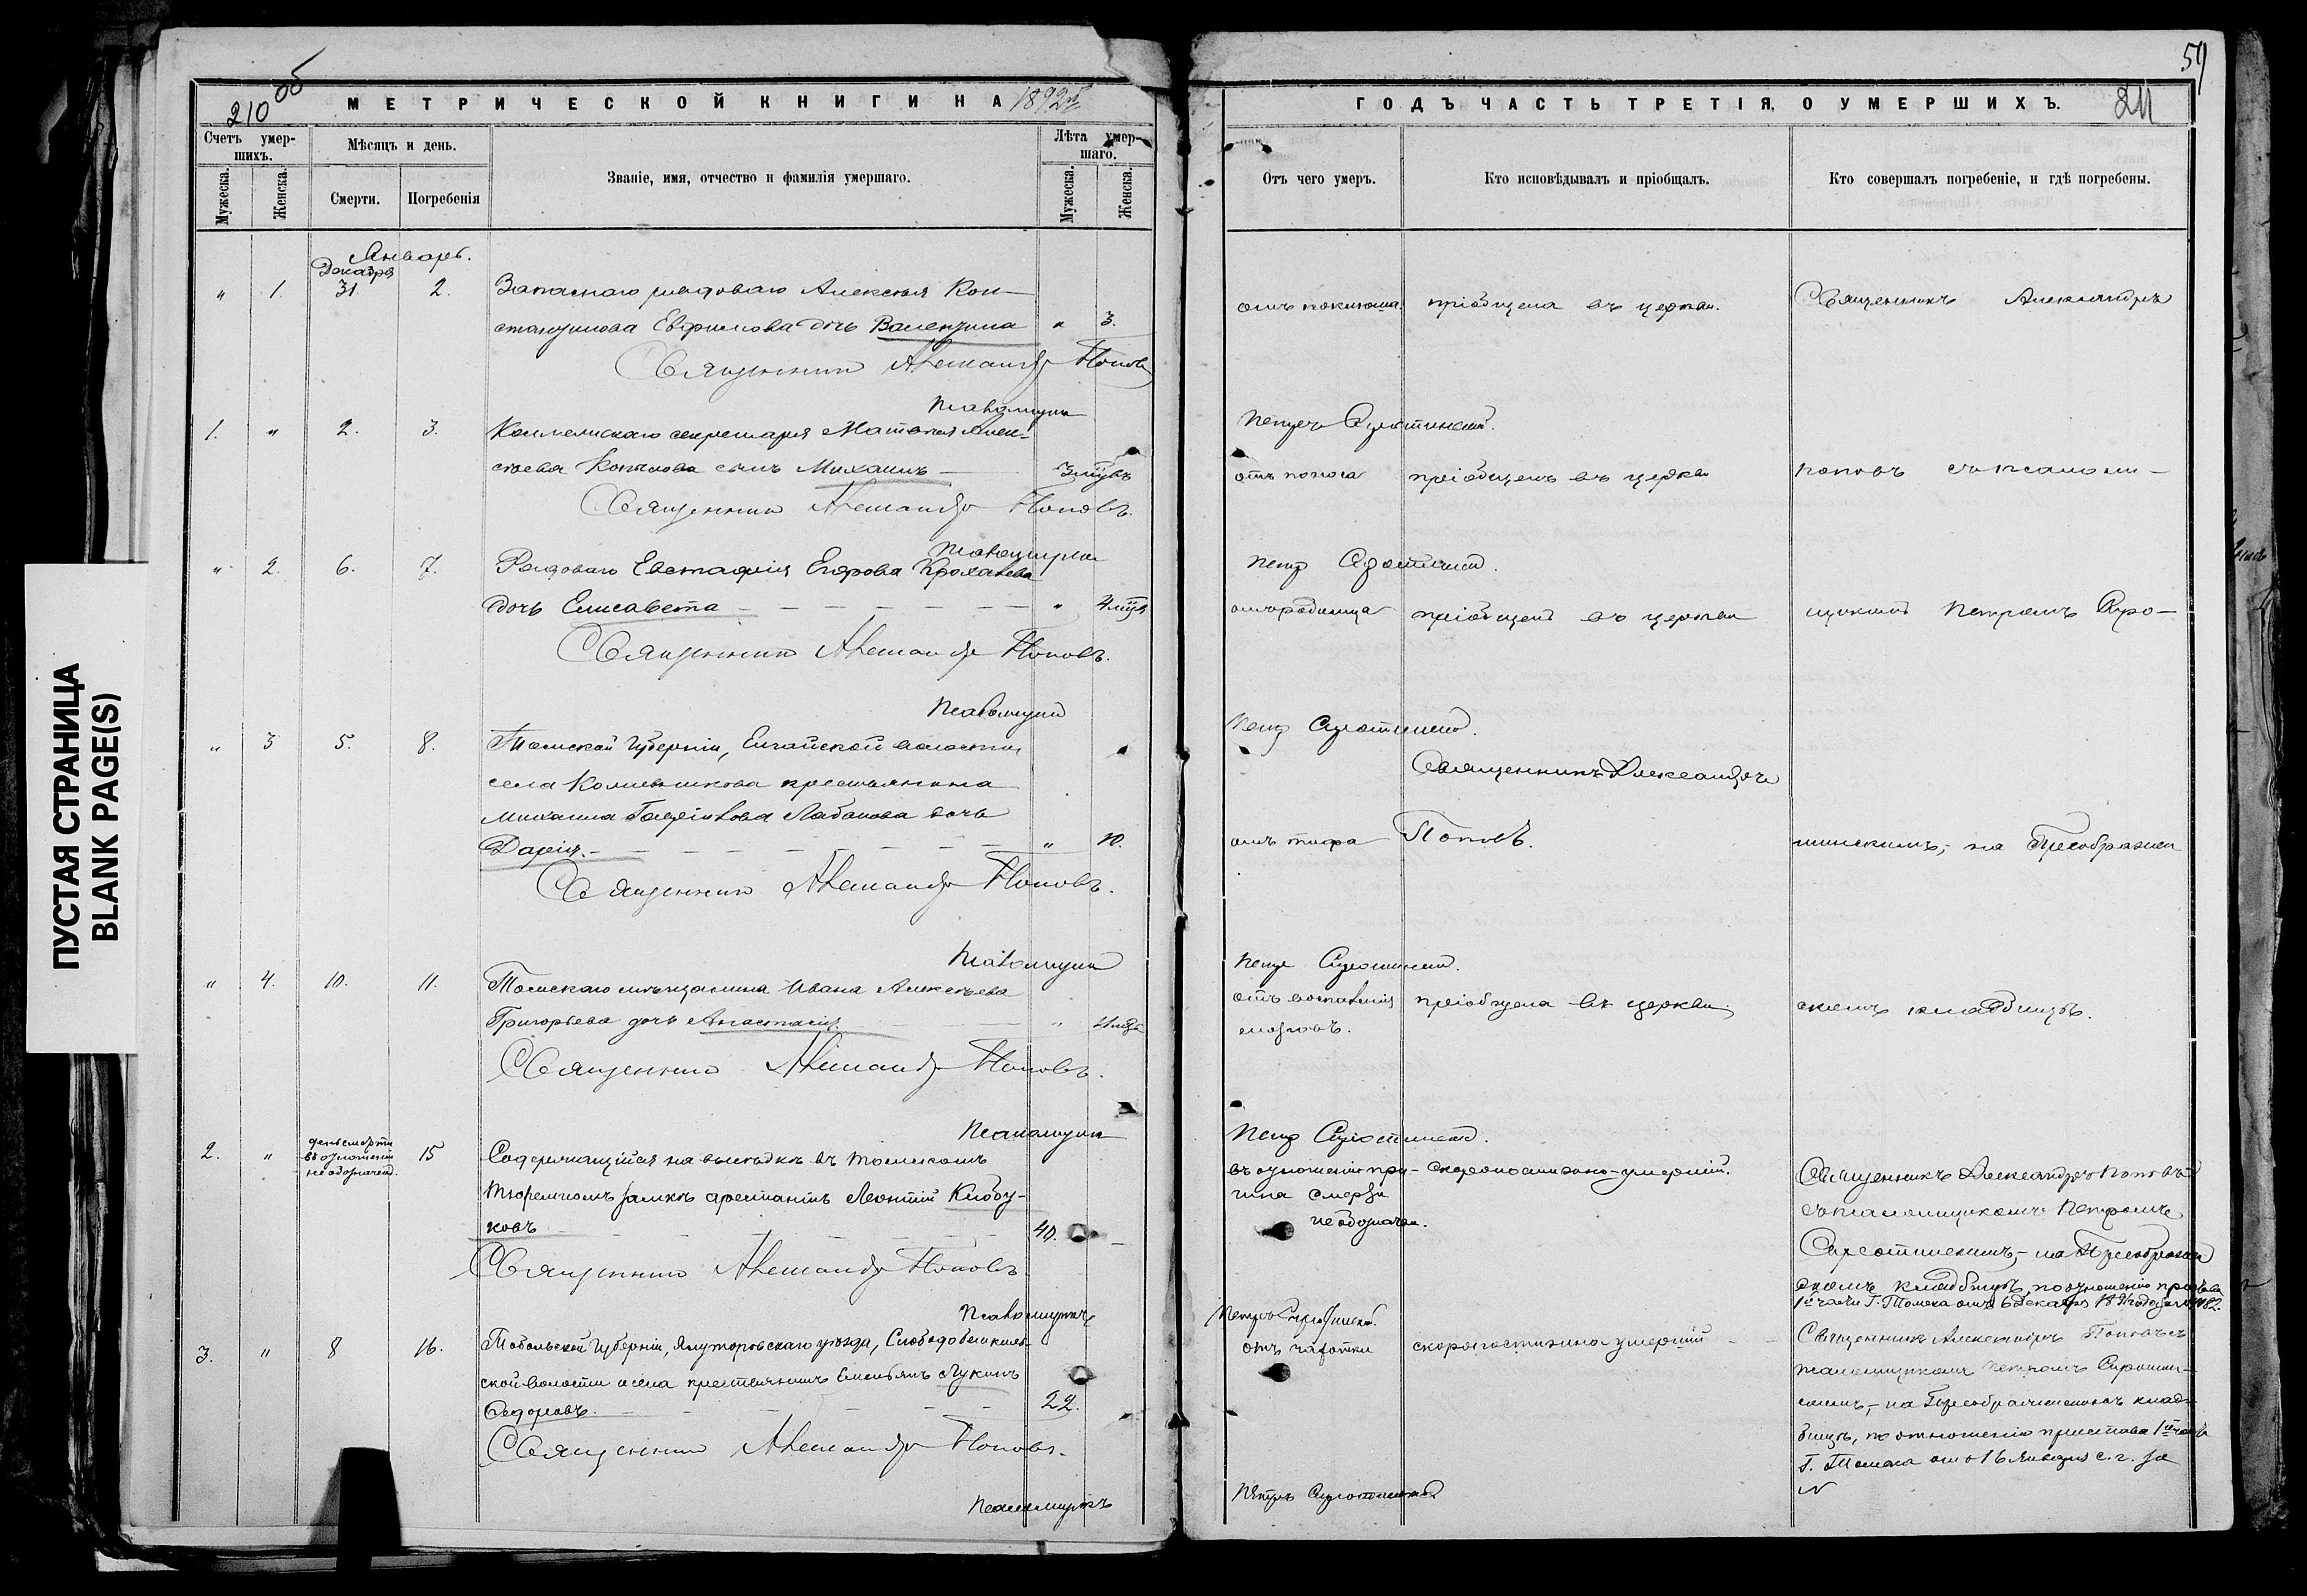 210 об
59
МЕТРИЧЕСКОЙ КНИГИ НА 1892й
ГОДЪ ЧАСТЬ ТРЕТІЯ, О УМЕРШИХЪ.
211
Счетъ умер-
шихъ.
Мужеска.
Женска.
Мѣсяцъ и день.
Смерти.
Погребенія
Званіе, имя, отчество и фамилія умершаго.
Лѣта умер-
шаго.
Мужеска.
Женска.
Отъ чего умеръ.
Кто исповѣдывалъ и пріобщалъ.
Кто совершалъ погребеніе, и гдѣ погребены.
Январь.
Декабря
„ 1. 31. 2. Запаснаго рядоваго Алексѣя Кон-
стантинова Евфимова дочь Валентина „ 3.
пріобщена въ церкви.
Священникъ Александръ
Священникъ Александръ Поповъ
Псаломщикъ
Петръ Сиротинскій.
1. „ 2. 3. Коллежскаго секретаря Матвея Алек-
сѣева Копылова сынъ Михаилъ — 3 мцвъ
отъ поноса
пріобщенъ въ церкви
Поповъ съ псалом-
Священникъ Александръ Поповъ.
Псаломщикъ
Петръ Сиротинскій.
„ 2. 6. 7. Рядоваго Евстафія Егорова
дочь Елисавета — „ 4 мця
отъ родимца
пріобщена въ церкви
щикомъ Петромъ Сиро-
Священникъ Александръ Поповъ.
Псаломщикъ
Петръ Сиротинскій.
„ 3 5. 8. Томской Губерніи, Елгайской волости
села крестьянина
Михаила Лабанова дочь
Дарія. — „ 10.
отъ тифа
Священникъ Александръ
Поповъ.
тинскимъ, на Преображен
Священникъ Александръ Поповъ.
Псаломщикъ
Петръ Сиротинскій.
„ 4. 10. 11. Томскаго мѣщанина Ивана Алексѣева
Григорьева дочь Анастасія. — „
отъ воспаленія
мозговъ.
пріобщена въ церкви.
скомъ кладбищѣ.
Священникъ Александръ Поповъ.
Псаломщикъ
Петръ Сиротинскій.
2. „ день смерти
въ отношеніи
не обозначенъ.
15 Содержащійся на высидкѣ въ Томскомъ
тюремномъ замкѣ арестантъ Леонтій Клобу-
ковъ — 40. —
въ отношеніи при-
чина смерти
не обозначен.
скоропостижно-умершій.
Священникъ Александръ Поповъ
съ псаломщикомъ Петромъ
Сиротинскимъ, - на Преображен
скомъ кладбищѣ, по отношенію пристава
1й части г. Томска отъ 6 Декабря 1891 года за №
Священникъ Александръ Поповъ.
Псаломщикъ
Петръ Сиротинскій.
3. „ 8 16. Тобольской Губерніи, Ялуторовскаго уѣзда, Слободо
ской волости и села крестьянинъ Емельянъ Лукинъ
Федоровъ. — 22.
отъ чахотки
скоропостижно умершій
Священникъ Александръ Поповъ съ
псаломщикомъ Петромъ Сиротин-
скимъ, - на Преображенскомъ клад-
бищѣ, по отношенію пристава 1й части
г. Томска отъ 16 Января с. г. за
№
Священникъ Александръ Поповъ.
Псаломщикъ
Петръ Сиротинскій
ПУСТАЯ СТРАНИЦА
BLANK PAGE(S)